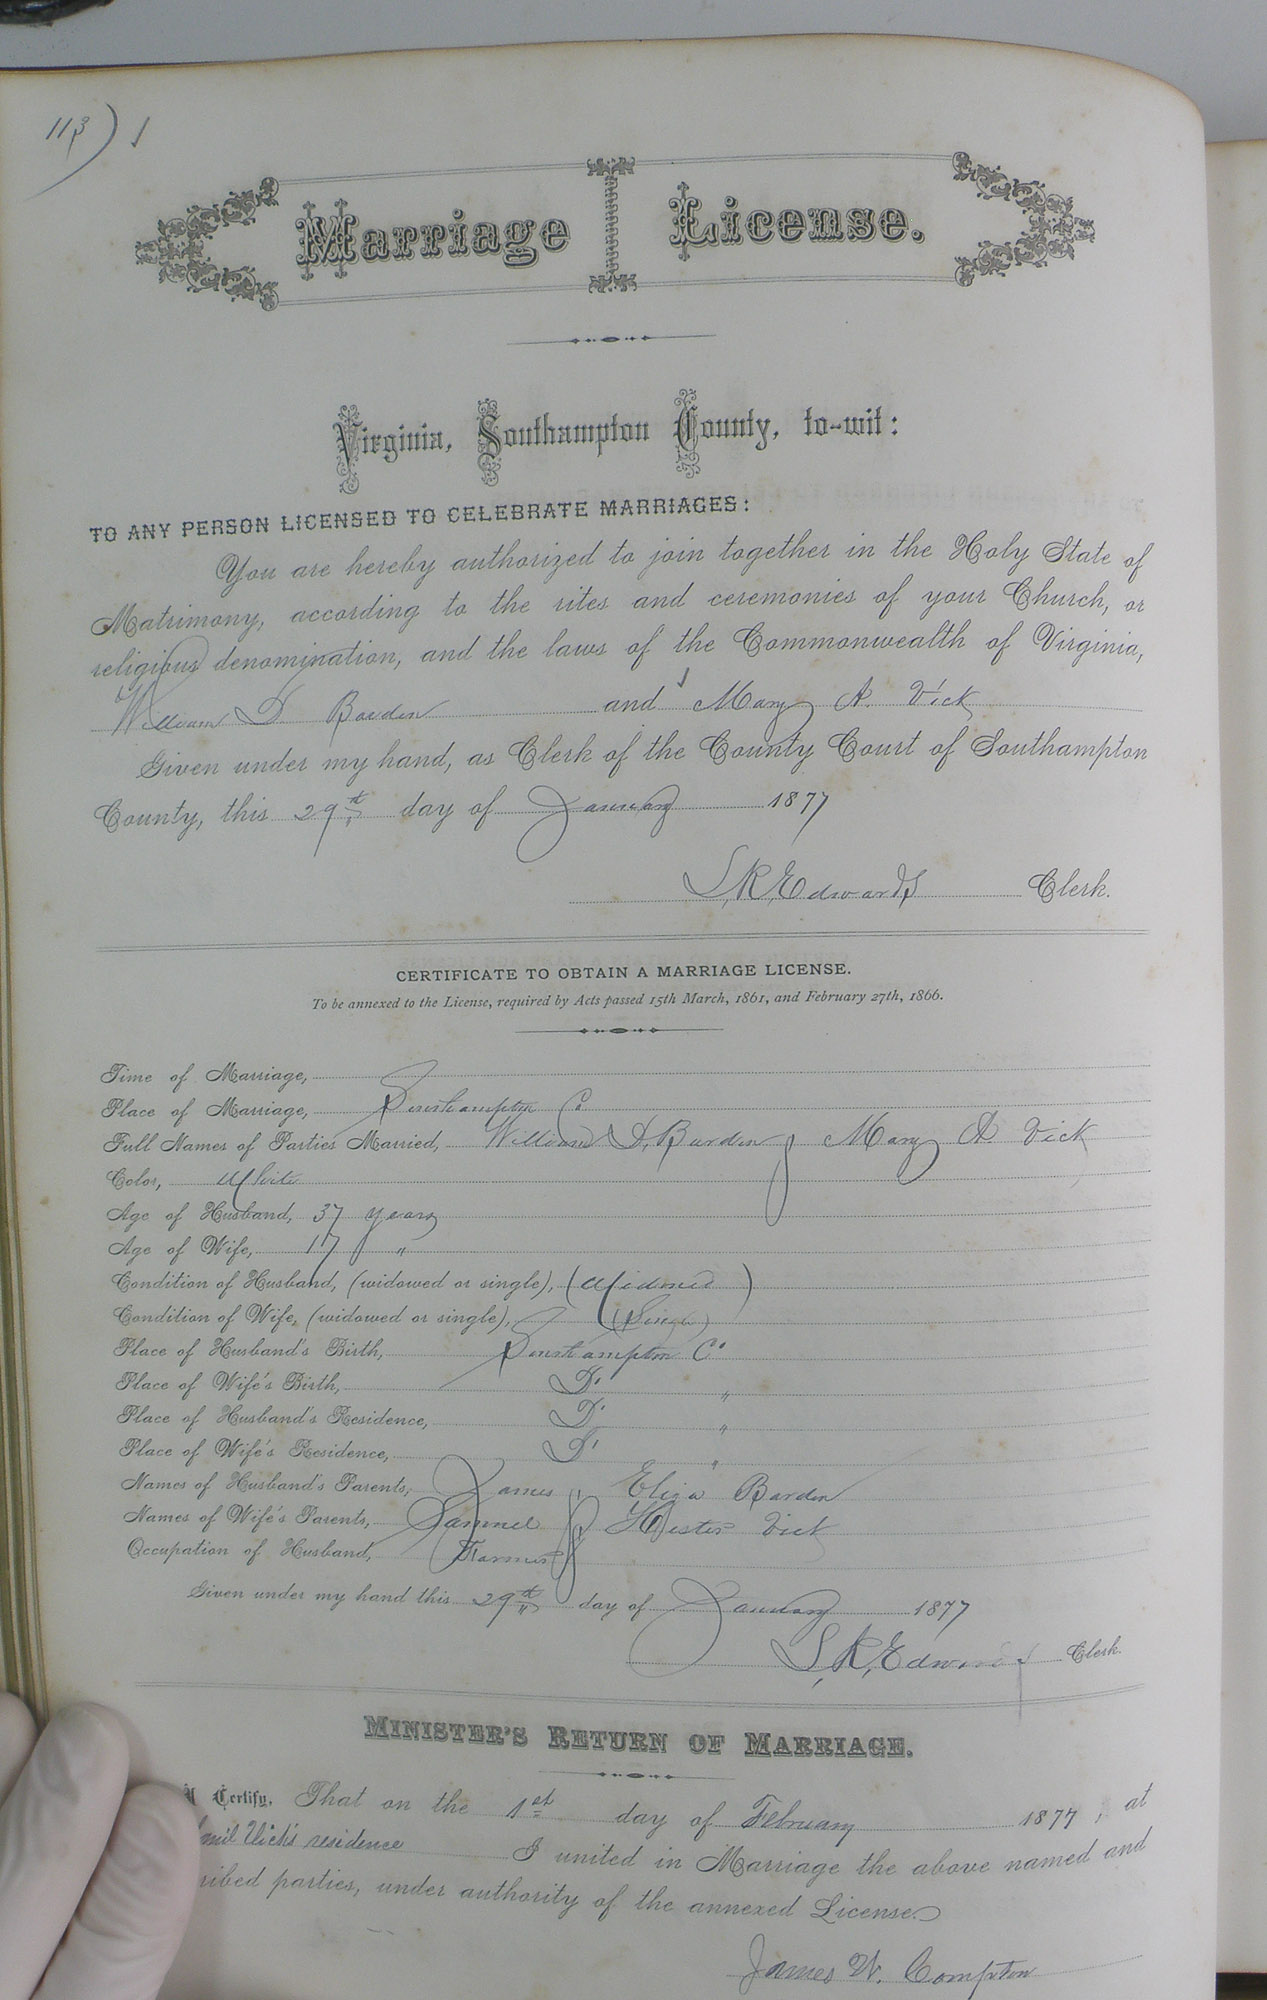 113)
Marriage License.
Virginia, Southampton County, to-wit:
TO ANY PERSON LICENSED TO CELEBRATE MARRIAGES:
You are hereby authorized to join together in the Holy State of
Matrimony, according to the rites and ceremonies of your Church, or
religious denomination, and the laws of the Commonwealth of Virginia,
William D. Barden and Mary A. Vick
Given under my hand, as Clerk of the County Court of Southampton
County, this 29th day of January 1877
L. R. Edwards Clerk.
CERTIFICATE TO OBTAIN A MARRIAGE LICENSE.
To be annexed to the License, required by Acts passed 15th March, 1861, and February 27th, 1866.
Time of Marriage,
Place of Marriage, Southampton Co
Full Names of Parties Married, William D. Barden & Mary A. Vick
Color, White
Age of Husband, 37 years
Age of Wife, 17 "
Condition of Husband, (widowed or single), (Widowed)
Condition of Wife, (widowed or single), (Single)
Place of Husband's Birth, Southampton Co
Place of Wife's Birth, Do "
Place of Husband's Residence, Do "
Place of Wife's Residence, Do "
Names of Husband's Parents, James & Eliza Barden
Names of Wife's Parents, Samuel & Hester Vick
Occupation of Husband, Farmer
Given under my hand this 29th day of January 1877
L. R. Edwards Clerk.
MINISTER'S RETURN OF MARRIAGE.
Certify, That on the 1st day of February 1877, at
Vick's residence I united in Marriage the above named and
parties, under authority of the annexed License.
James W. Compton